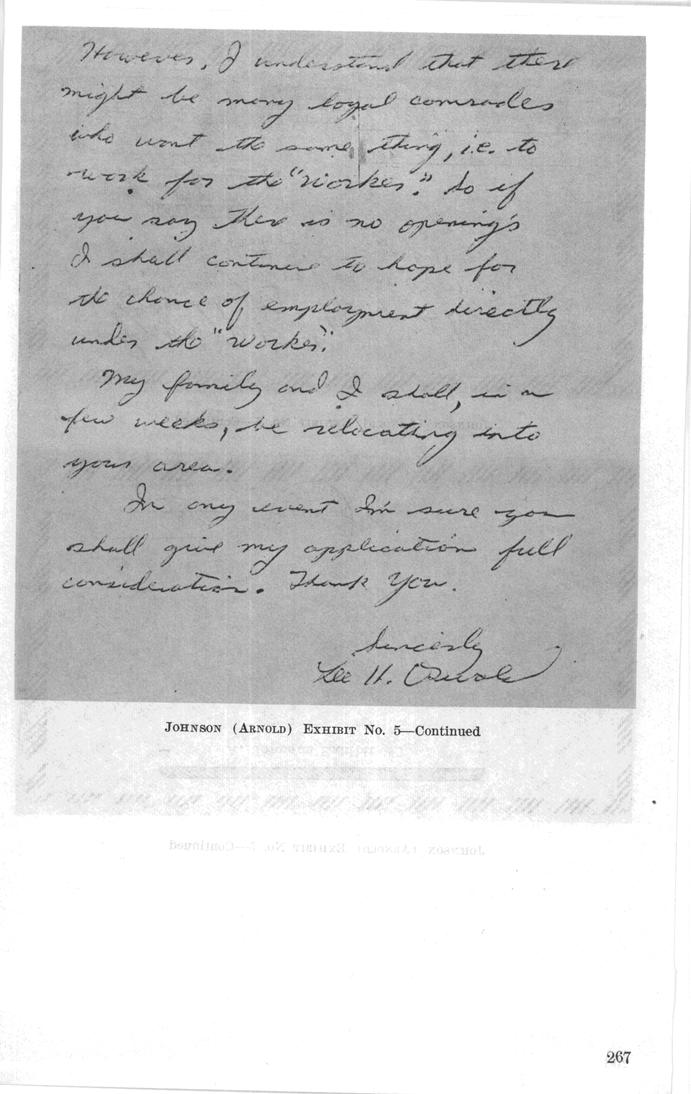 However, I understand that there
might be many loyal comrades
who want the same thing, i.e. to
work for the "Worker". So if
you say there is no opening's
I shall continue to hope for
the chance of employment directly
under the "Worker".
My family and I shall, in a
few weeks, be relocating into
your area.
In any event I'm sure you
shall give my application full
consideration. Thank You.
Sincerely
Lee H. Oswald
JOHNSON (ARNOLD) EXHIBIT No. 5—Continued
JOHNSON (ARNOLD) EXHIBIT No. 5—Continued
267